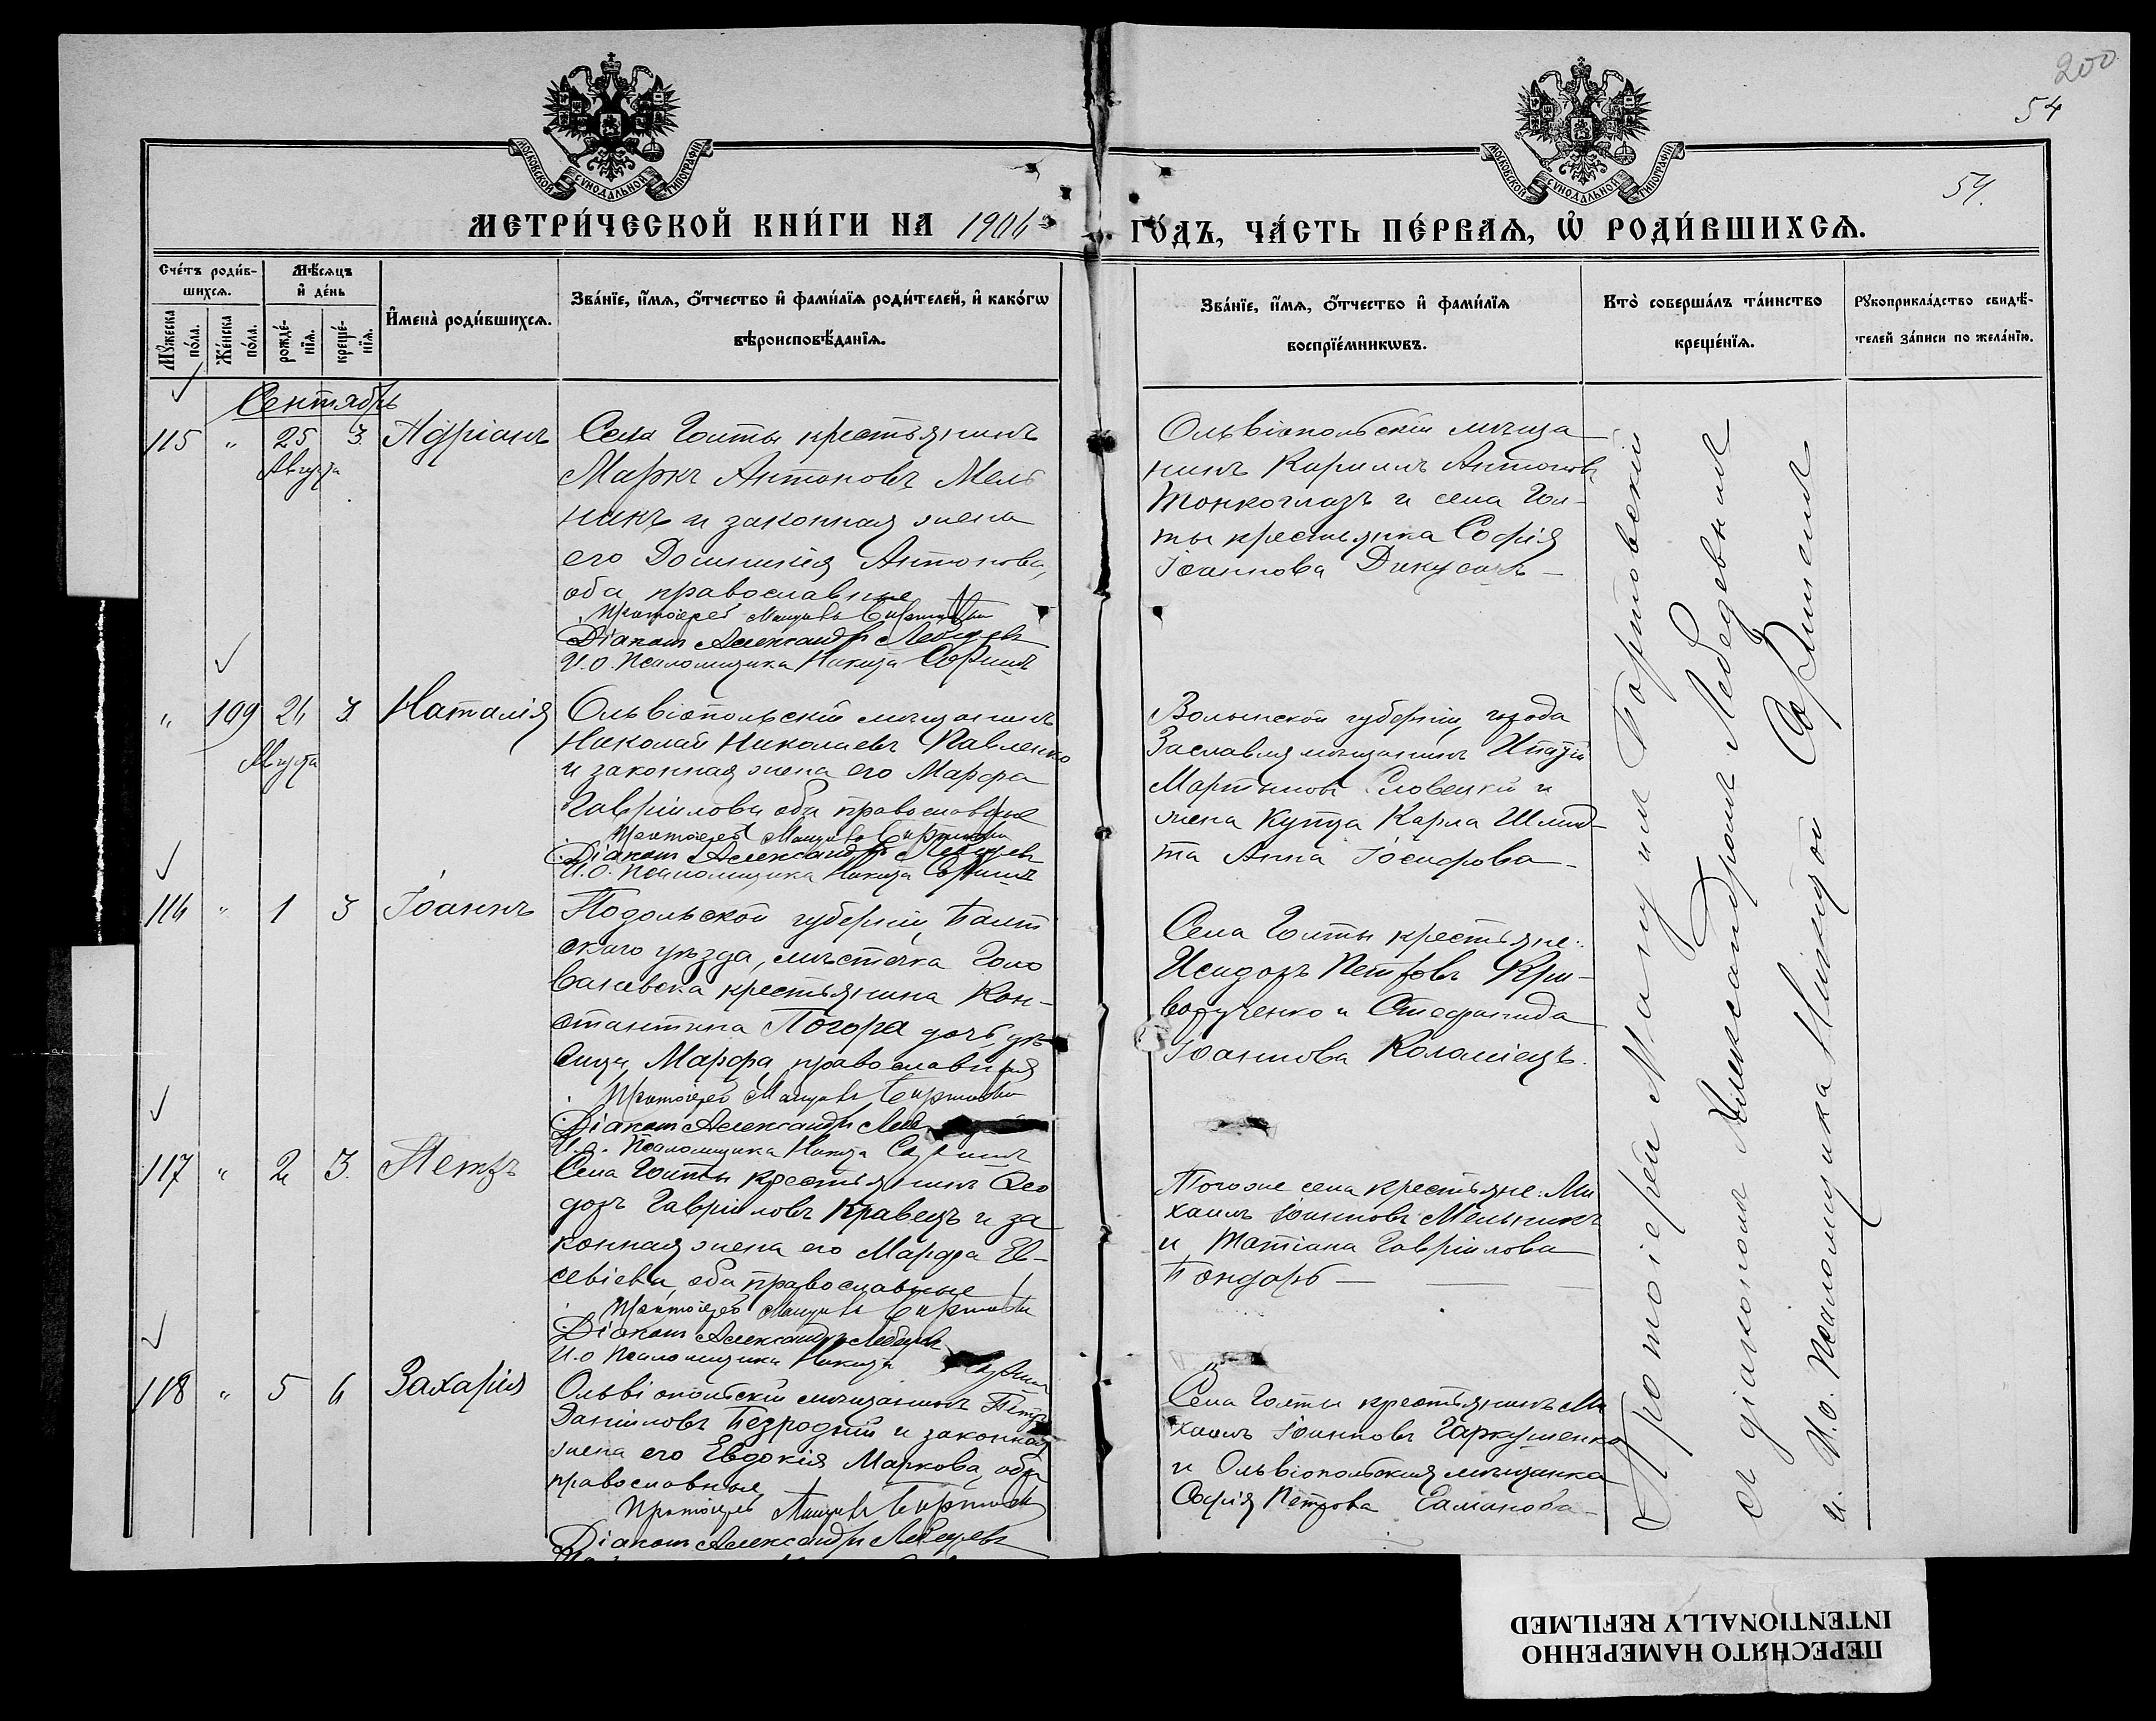 200
54
54.
МОСКОВСКОЙ СѴНОДАЛЬНОЙ ТИПОГРАФІИ
МОСКОВСКОЙ СѴНОДАЛЬНОЙ ТИПОГРАФІИ
МЕТРИ́ЧЕСКОЙ КНИ́ГИ НА 1906 й
ГО́ДЪ, ЧА́СТЬ ПЕ́РВАѦ, Ѡ҆ РОДИ́ВШИХСѦ.
Сче́тъ роди́в-
шихсѧ.
Мꙋ́жеска
по́ла.
Же́нска
по́ла.
Мѣ́сѧцъ
и҆ де́нь
рожде́-
нїѧ.
креще́-
нїѧ.
И҆мена̀ роди́вшихсѧ.
Зва́нїе, и҆́мѧ, ѻ҆́тчество и҆ фами́лїѧ роди́телей, и҆ како́гѡ
вѣроисповѣ́данїѧ.
Зва́нїе, и҆́мѧ, ѻ҆́тчество и҆ фами́лїѧ
воспрїе́мникѡвъ.
Кто̀ соверша́лъ та́инство
креще́нїѧ.
Рꙋкоприкла́дство свидѣ́-
телей за́писи по жела́нїю.
Сентябрь
115 " 25 3. Адріанъ
Августа
Села Голты крестьянинъ
Маркъ Антоновъ Мель
никъ и законная жена
его Домникія Антонова,
оба православные
Протоіерей Мануилъ Бортовскій
Діаконъ Александръ Лебедевъ
И. о. Псаломщика Никита
Ольвіопольскій мѣща
нинъ Кириллъ Антоновъ
Тонкоглазъ и села Гол-
ты крестьянка Софія
Іоаннова Дикусаръ —
" 109 26 3. Наталія
Августа
Ольвіопольскій мѣщанинъ
Николай Николаевъ Павленко
и законная жена его Марфа
Гавріилова, оба православные
Протоіерей Мануилъ Бортовскій
Діаконъ Александръ Лебедевъ
И. о. Псаломщика Никита
Волынской губерніи, города
Заславля мѣщанинъ Ипатій
Мартиновъ Словецкій и
жена купца Карла Шмид-
та Анна Іосифова —
116 " 1 3 Іоаннъ
Подольской губерніи, Балт
скаго уѣзда, мѣстечка Голо
ваневска крестьянина Кон-
стантина Погора дочь, дѣ
вица, Марфа, православная
Протоіерей Мануилъ Бортовскій
Діаконъ Александръ
И. о. Псаломщика Никита
Села Голты крестьяне:
Исидоръ Петровъ Кри-
ворученко и Стефанида
Іоаннова Коломіецъ.
117 " 2 3. Петръ
Села Голты крестьянинъ Ѳео
доръ Гавріиловъ Кравецъ и за
конная жена его Марфа Ев-
севіева, оба православные
Протоіерей Мануилъ Бортовскій
Діаконъ Александръ Лебедевъ
И. о Псаломщика Никита
Того же села крестьяне: Ми
хаилъ Іоанновъ Мельникъ
и Татіана Гавріилова
Бондарь —
118 " 5 6 Захарія
Ольвіопольскій мѣщанинъ Петръ
Даніиловъ Безродній и законная
жена его Евдокія Маркова, оба
православные
Протоіерей Мануилъ Бортовскій
Діаконъ Александръ Лебедевъ
Села Голты крестьянинъ Ми
хаилъ Іоанновъ Гаркушенко
и Ольвіопольская мѣщанка
Софія Петрова
Протоіерей Мануилъ Бортовскій
съ діакономъ Александромъ Лебедевымъ
и И. о. Псаломщика Никитой
ПЕРЕСНЯТО НАМЕРЕННО
INTENTIONALLY REFILMED